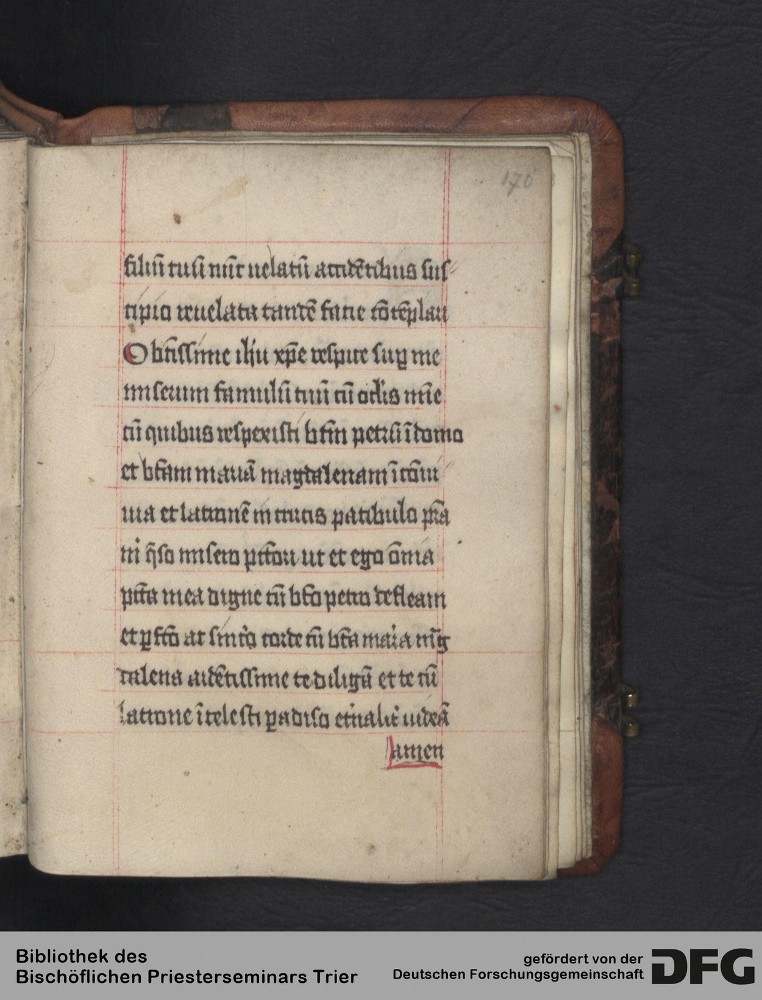 170
filiū tuū nūc uelatū accidētibus sus-
cipio reuelata tandē facie cōtēplari
O btissime ihu xpe respice sup me
miserum famulū tuū cū oclis mīe
cū quibus respexisti btm petrū ī domo
et btam mariā magdalenam ī cōui
uia et latronē in crucis patibulo psta
m qso misero pctori ut et ego omia
pcta mea digne cū bto petro defleam
et pfcto ac sincero corde cū bta maria mag
dalena ardētissime te diligā et te cū
latrone ī celesti padiso etnalit uideā
amen
Bibliothek des
Bischöflichen Priesterseminars Trier
gefördert von der
Deutschen Forschungsgemeinschaft
DFG